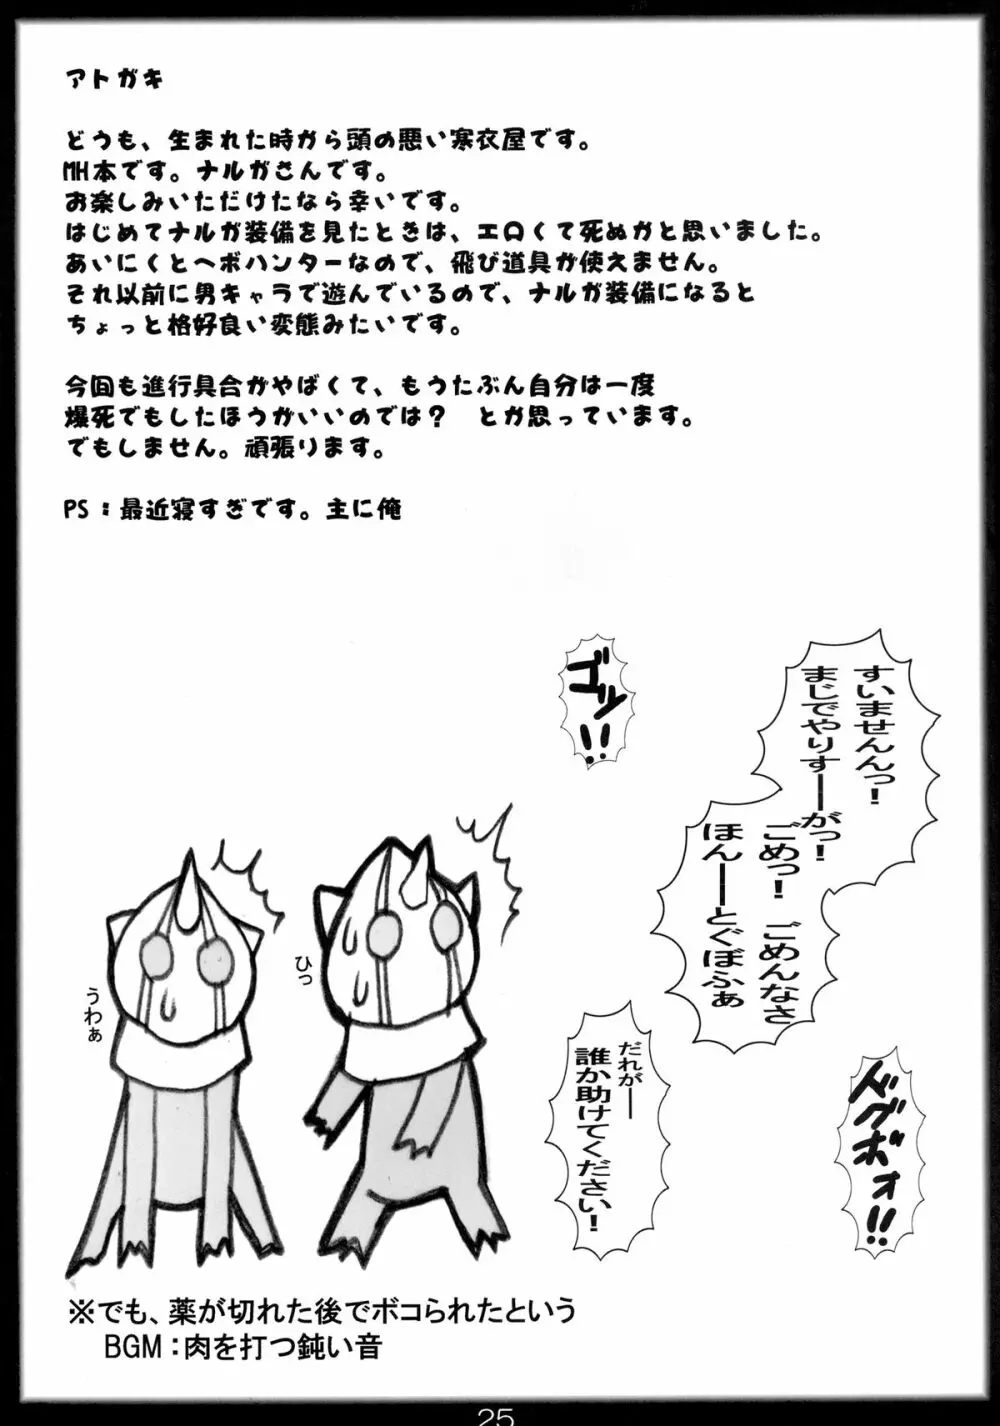 アトガキ
どうも、生まれた時から頭の悪い寒衣屋です。
MH本です。ナルガさんです。
お楽しみいただけたなら幸いです。
はじめてナルガ装備を見たときは、エロくて死ぬかと思いました。
あいにくとヘボハンターなので、飛び道具が使えません。
それ以前に男キャラで遊んでいるので、ナルガ装備になると
ちょっと格好良い変態みたいです。
今回も進行具合がやばくて、もうたぶん自分は一度
爆死でもしたほうがいいのでは？　とか思っています。
でもしません。頑張ります。
PS：最近寝すぎです。主に俺
すいませんんっ！
まじでやりすーーがっ！
ごめっ！　ごめんなさ
ほんーーとぐぼふぁ
ゴッ!!
だれがー
誰か助けてください！
ドグボォ!!
ひっ
うわぁ
※でも、薬が切れた後でボコられたという
BGM：肉を打つ鈍い音
25